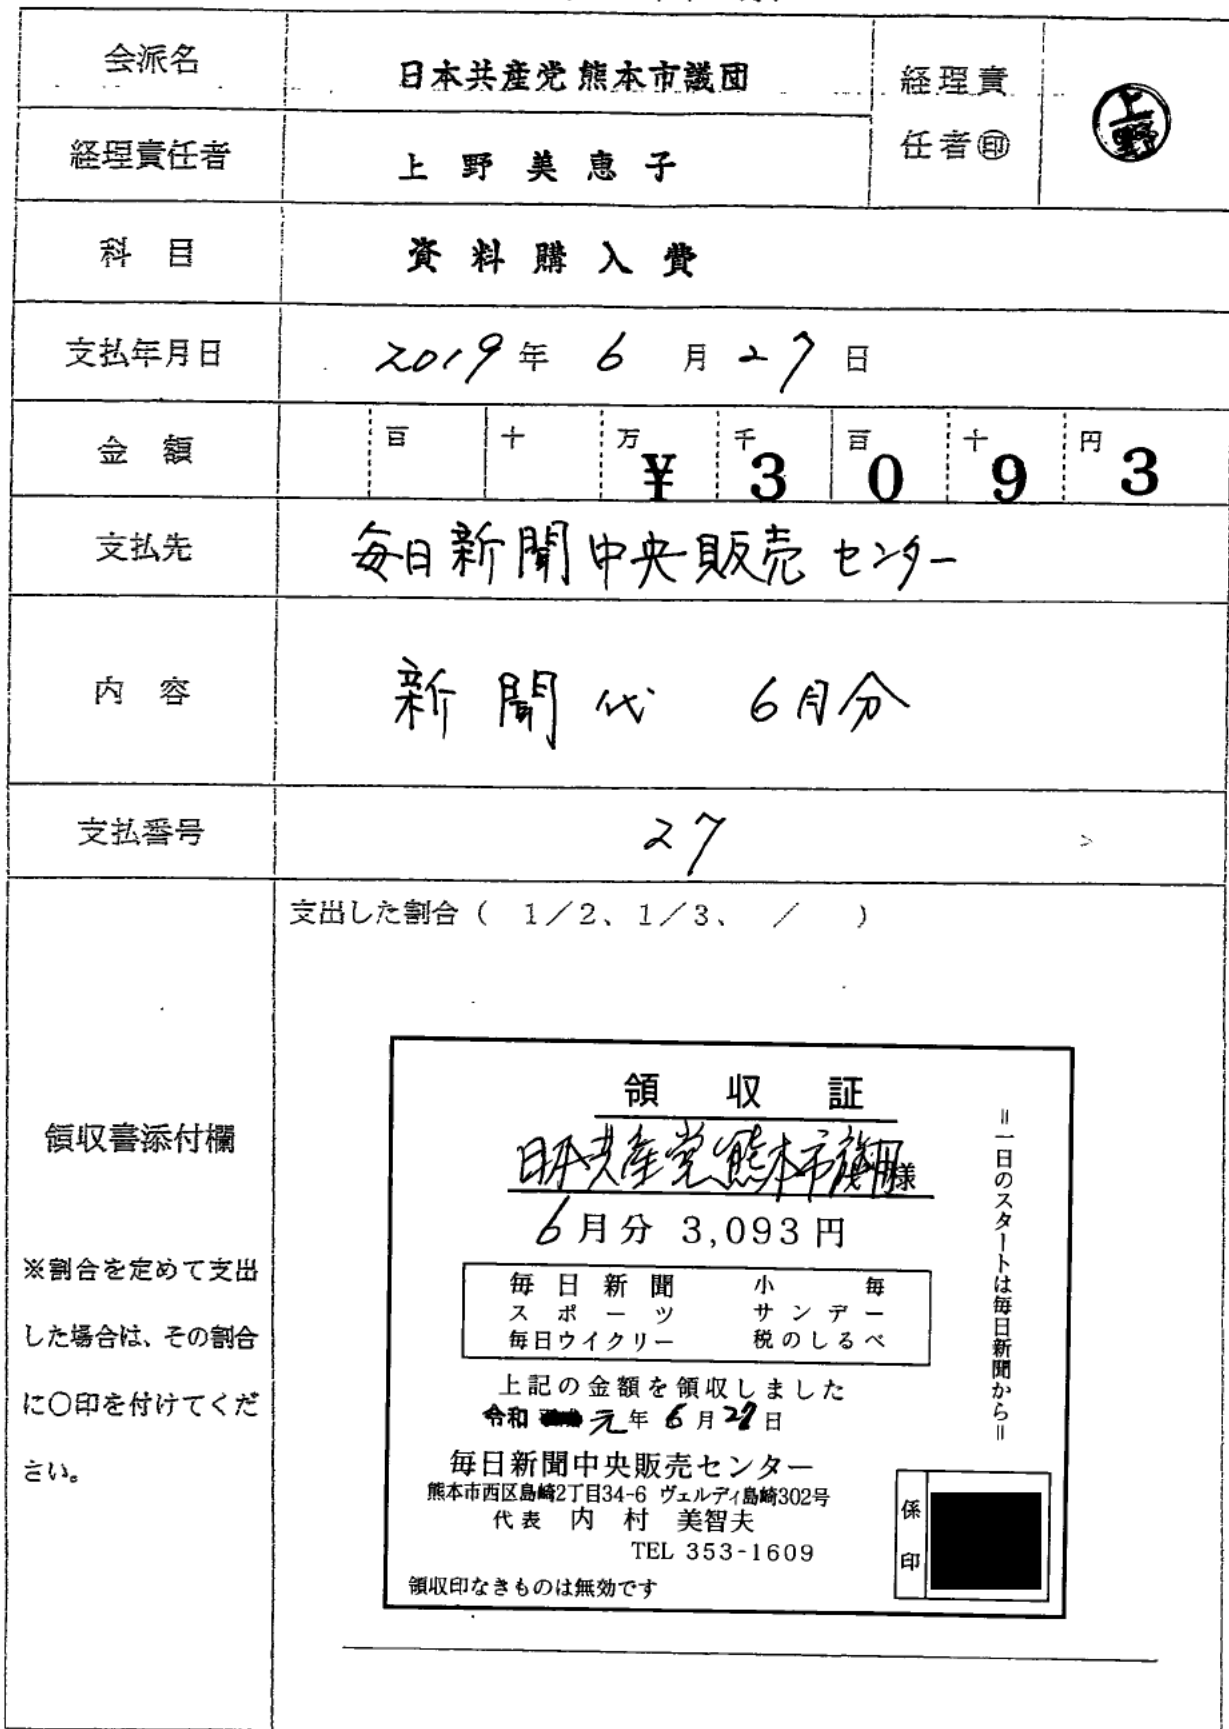 会派名 日本共産党熊本市議団 経理責任者㊞ 上野
経理責任者 上野美恵子
科目 資料購入費
支払年月日 2019年 6月27日
金額 百 十 万 千 百 十 円
¥3093
支払先 毎日新聞中央販売センター
内容 新聞代 6月分
支払番号 27
支出した割合( 1/2、1/3、 / )
領収書添付欄
※割合を定めて支出
した場合は、その割合
に○印を付けてくだ
さい。
領収証
日本共産党熊本市議団様
6月分 3,093円
毎日新聞 小毎
スポーツ サンデー
毎日ウイクリー 税のしるべ
上記の金額を領収しました
令和元年6月27日
毎日新聞中央販売センター
熊本市西区島崎2丁目34-6 ヴェルディ島崎302号
代表 内村 美智夫
TEL 353-1609
領収印なきものは無効です
係印
=一日のスタートは毎日新聞から=